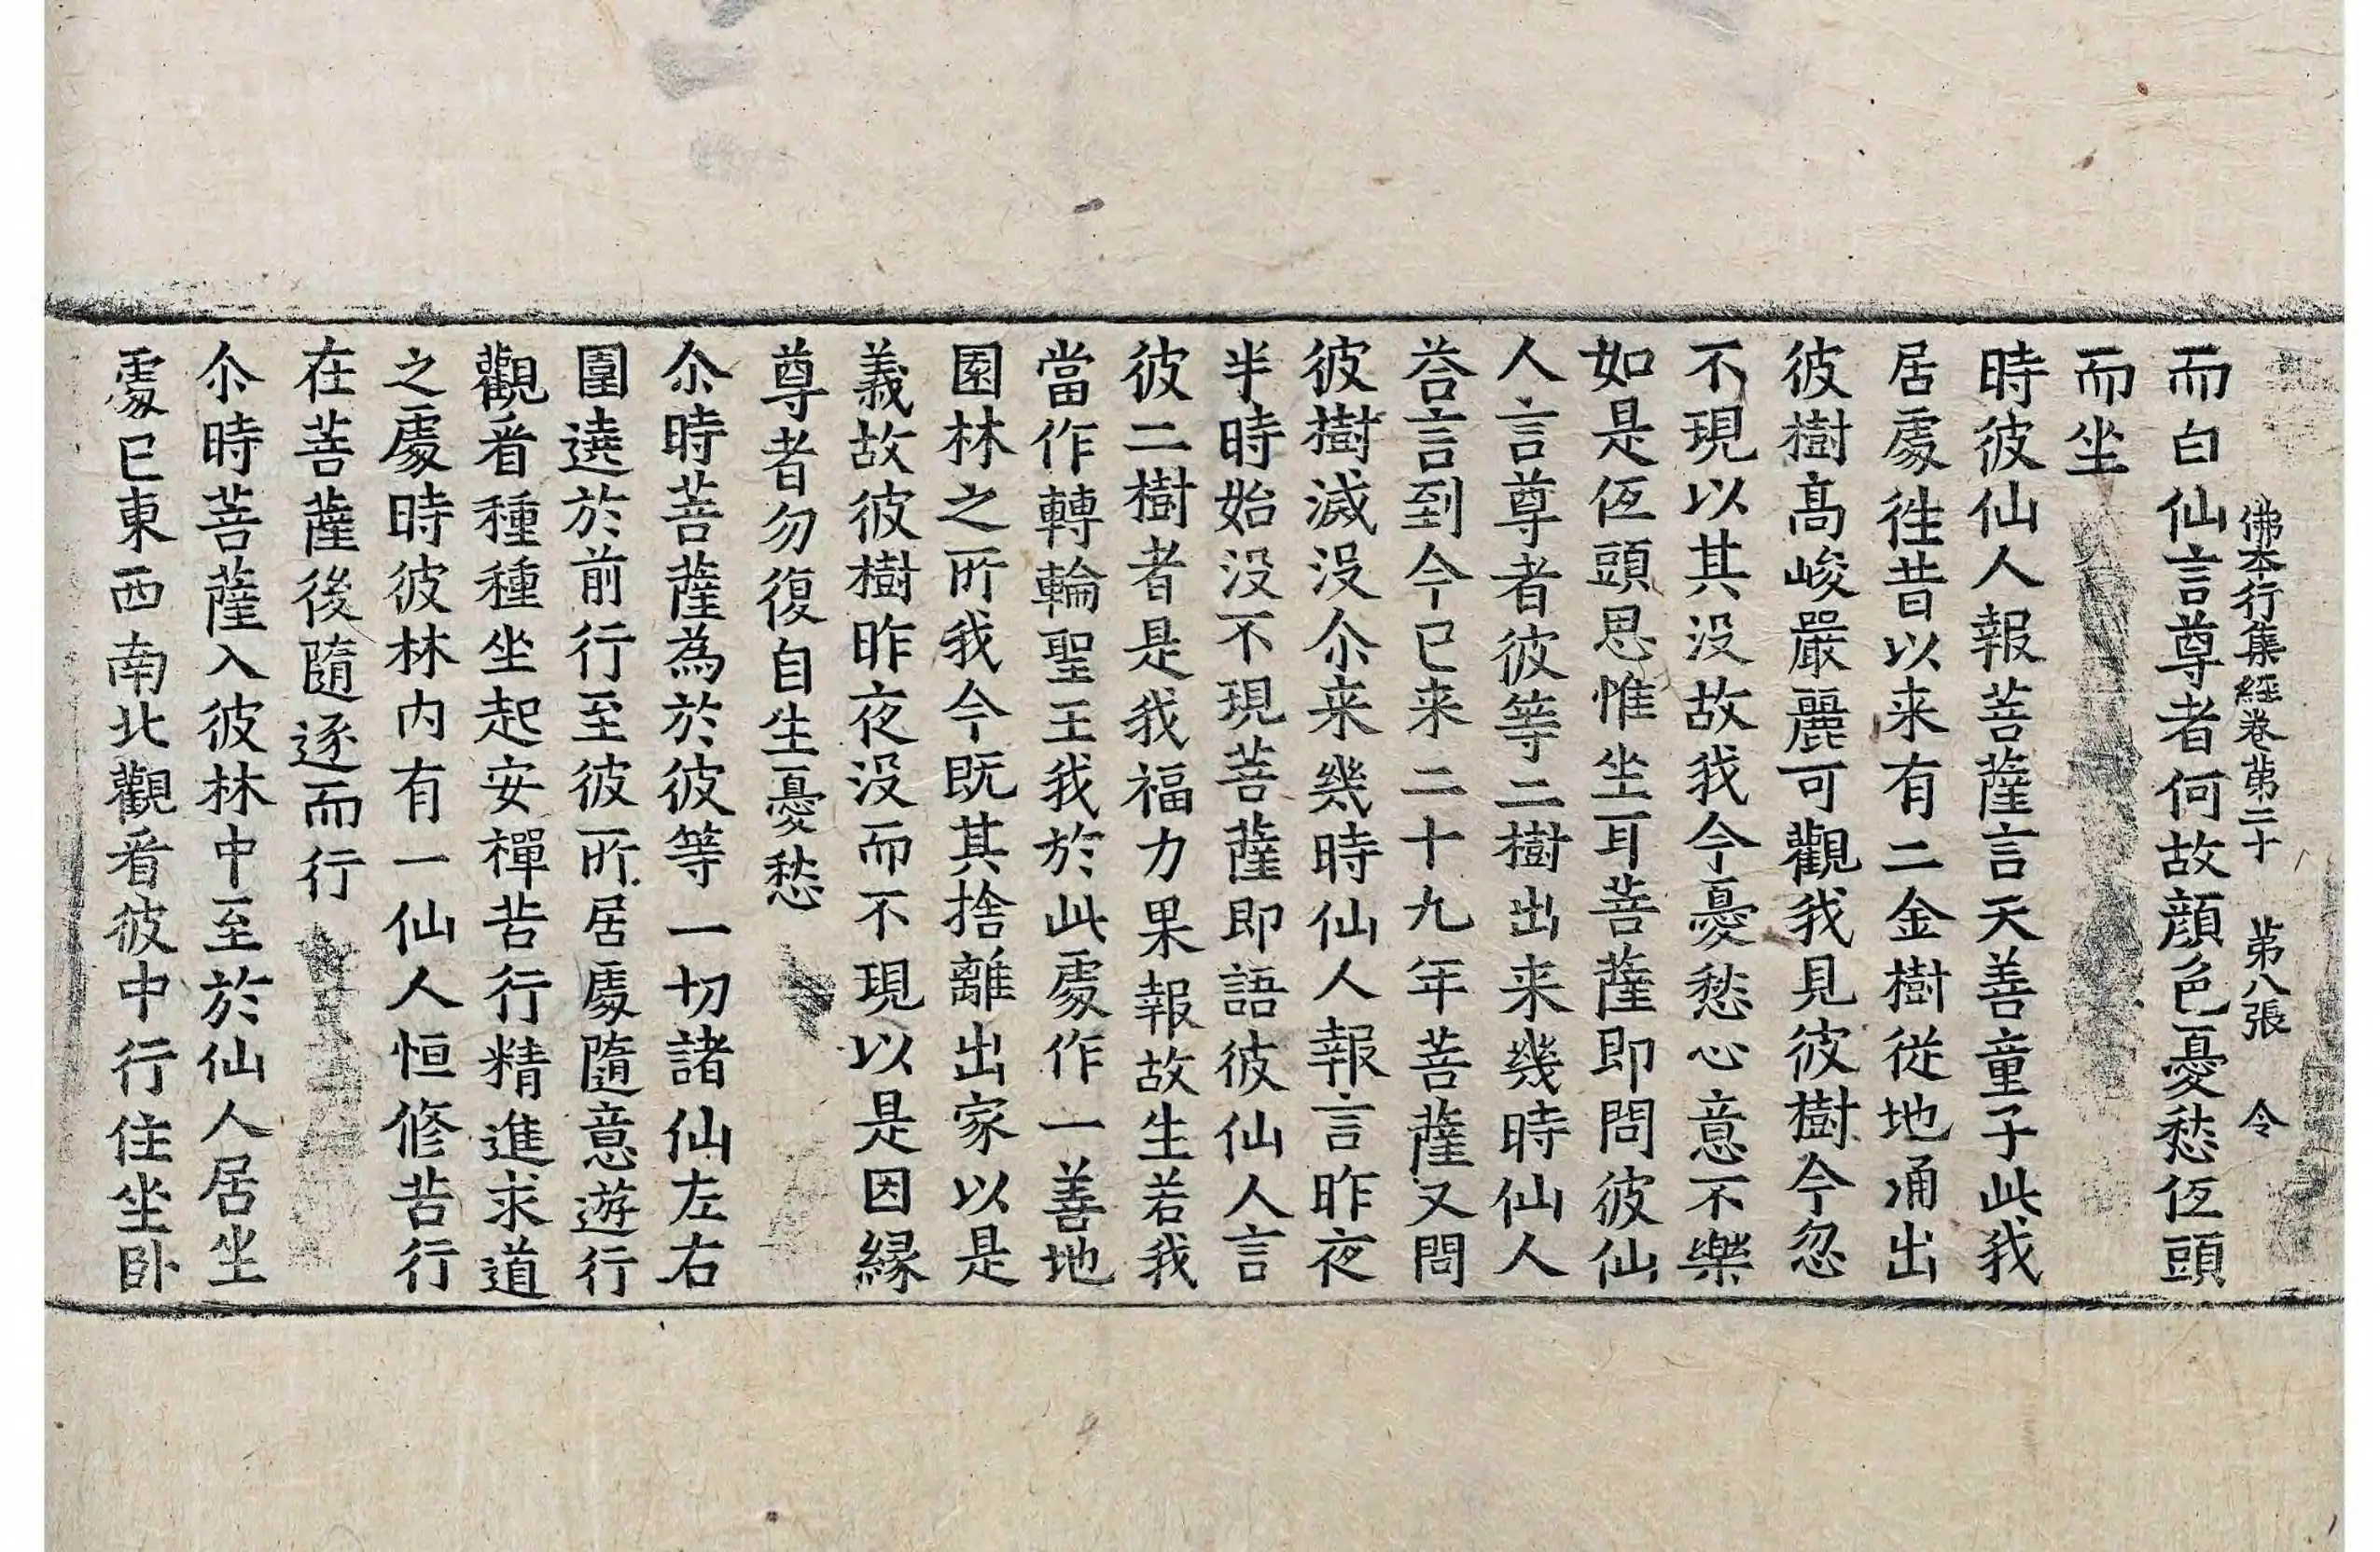 佛本行集經卷第二十 第八張 令
而白仙言尊者何故顔色憂愁伍頭
而坐
時彼仙人報菩薩言天善童子此我
居處徃昔以来有二金樹從地涌出
彼樹髙峻嚴麗可觀我見彼樹今忽
不現以其没故我今憂愁心意不樂
如是伍頭思惟坐耳菩薩即問彼仙
人言尊者彼等二樹出来幾時仙人
荅言到今已来二十九年菩薩又問
彼樹滅没尒来幾時仙人報言昨夜
半時始没不現菩薩即語彼仙人言
彼二樹者是我福力果報故生若我
當作轉輪聖王我於此處作一善地
園林之所我今既其捨離出家以是
義故彼樹昨夜没而不現以是因縁
尊者勿復自生憂愁
尒時菩薩為於彼等一切諸仙左右
圍遶於前行至彼所居處隨意遊行
觀看種種坐起安禪苦行精進求道
之處時彼林内有一仙人恒修苦行
在菩薩後隨逐而行
尒時菩薩入彼林中至於仙人居坐
處已東西南北觀看彼中行住坐卧